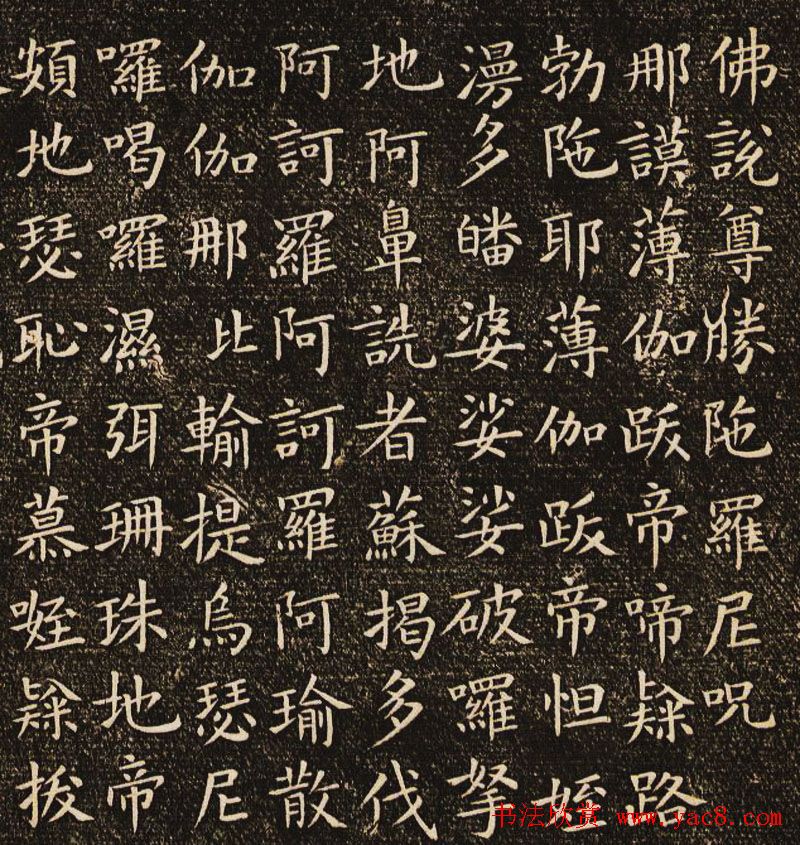 佛說尊勝陁羅尼呪
那謨薄伽跋帝啼隸路
勃陁耶薄伽跋帝怛姪
漫多皤婆娑娑破囉拏
地阿鼻詵者蘇揭多伐
阿訶羅阿訶羅阿瑜散
伽伽那比輸提烏瑟尼
囉喝囉濕弭珊珠地帝
頞地瑟恥帝慕隸拔
书法欣赏 www.yac8.com